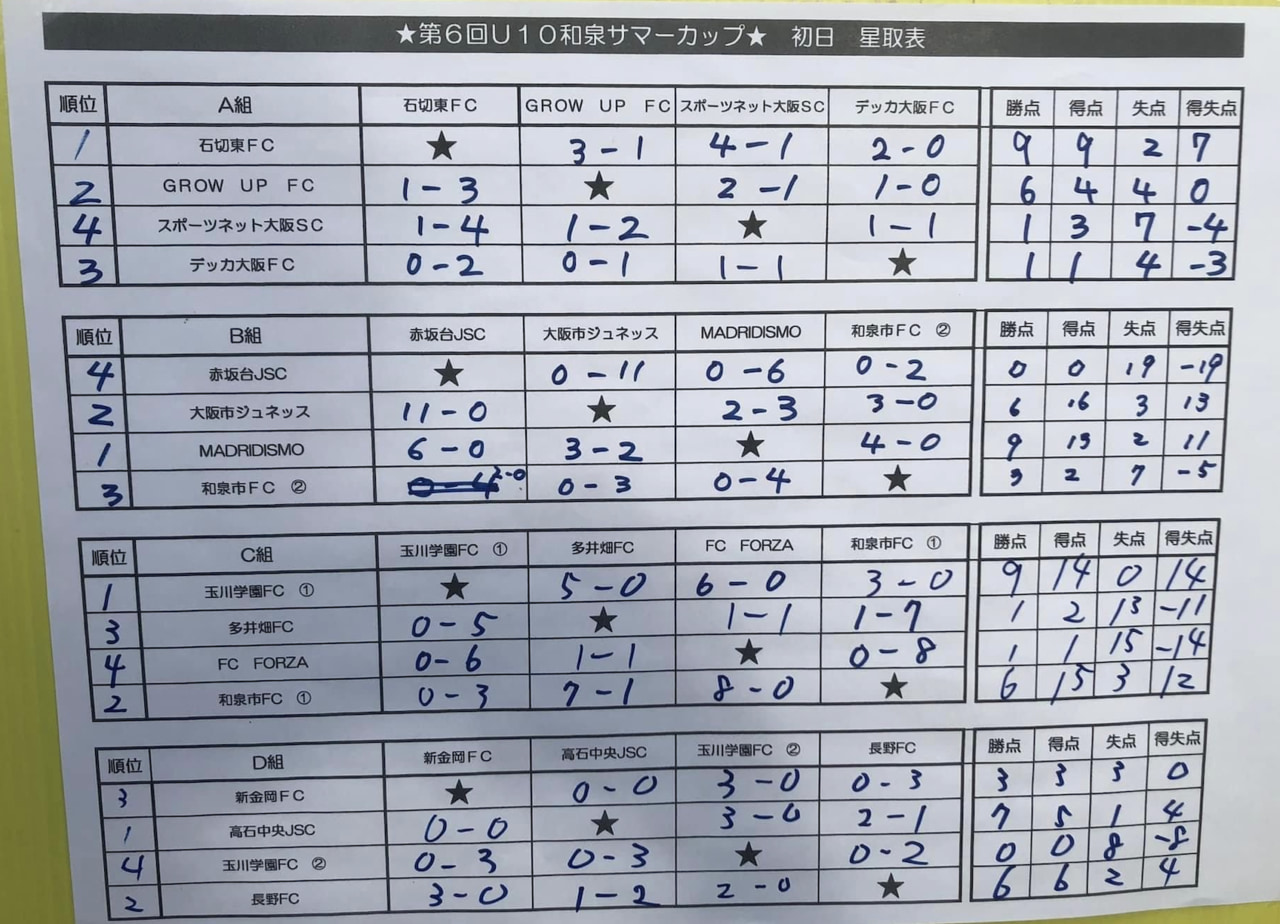 ★第6回U10和泉サマーカップ★ 初日 星取表
順位 A組 石切東FC GROW UP FC スポーツネット大阪SC デッカ大阪FC 勝点 得点 失点 得失点
1 石切東FC ★ 3-1 4-1 2-0 9 9 2 7
2 GROW UP FC 1-3 ★ 2-1 1-0 6 4 4 0
4 スポーツネット大阪SC 1-4 1-2 ★ 1-1 1 3 7 -4
3 デッカ大阪FC 0-2 0-1 1-1 ★ 1 1 4 -3
順位 B組 赤坂台JSC 大阪市ジュネッス MADRIDISMO 和泉市FC ② 勝点 得点 失点 得失点
4 赤坂台JSC ★ 0-11 0-6 0-2 0 0 19 -19
2 大阪市ジュネッス 11-0 ★ 2-3 3-0 6 16 3 13
1 MADRIDISMO 6-0 3-2 ★ 4-0 9 13 2 11
3 和泉市FC ② 2-0 0-3 0-4 ★ 3 2 7 -5
順位 C組 玉川学園FC ① 多井畑FC FC FORZA 和泉市FC ① 勝点 得点 失点 得失点
1 玉川学園FC ① ★ 5-0 6-0 3-0 9 14 0 14
3 多井畑FC 0-5 ★ 1-1 1-7 1 2 13 -11
4 FC FORZA 0-6 1-1 ★ 0-8 1 1 15 -14
2 和泉市FC ① 0-3 7-1 8-0 ★ 6 15 3 12
順位 D組 新金岡FC 高石中央JSC 玉川学園FC ② 長野FC 勝点 得点 失点 得失点
3 新金岡FC ★ 0-0 3-0 0-3 3 3 3 0
1 高石中央JSC 0-0 ★ 3-0 2-1 7 5 1 4
4 玉川学園FC ② 0-3 0-3 ★ 0-2 0 0 8 -8
2 長野FC 3-0 1-2 2-0 ★ 6 6 2 4